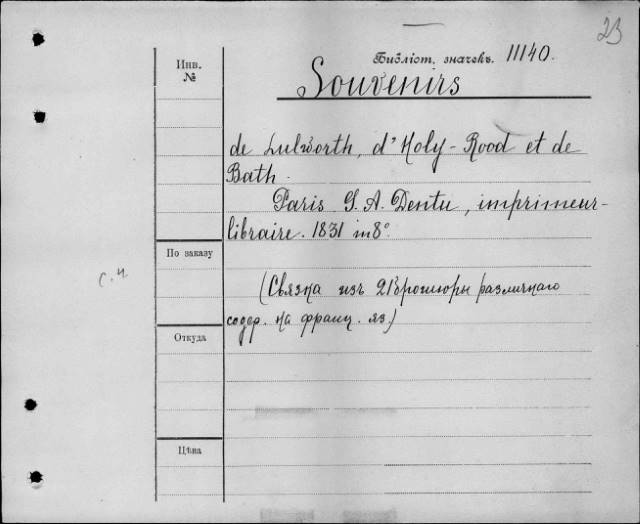 23
Инв.
№
Библіот. значекъ. 11140.
Souvenirs
de Lulworth, d'Holy-Rood et de
Bath.
Paris G. A. Dentu, imprimeur-
libraire. 1831 in 8°
По заказу
с. ч.
(Связка изъ 21 брошюры различнаго
содер. на франц. яз.)
Откуда
Цѣна